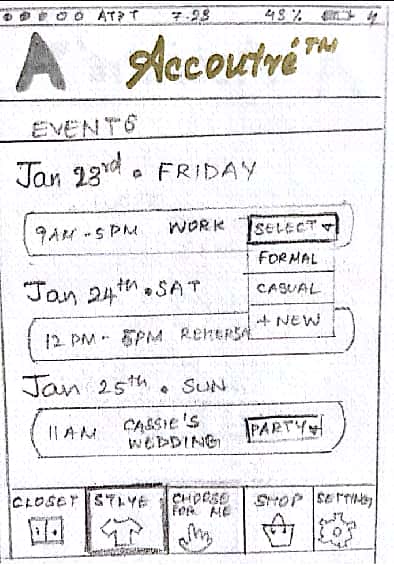 AT&T 7:23 43%
A Accoutré™
EVENTS
Jan 23rd • FRIDAY
9AM - 5PM WORK SELECT
FORMAL
CASUAL
+ NEW
Jan 24th • SAT
12 PM - 5PM REHERSA
Jan 25th • SUN
11AM CASSIE'S WEDDING PARTY
CLOSET STLYE CHOOSE FOR ME SHOP SETTING